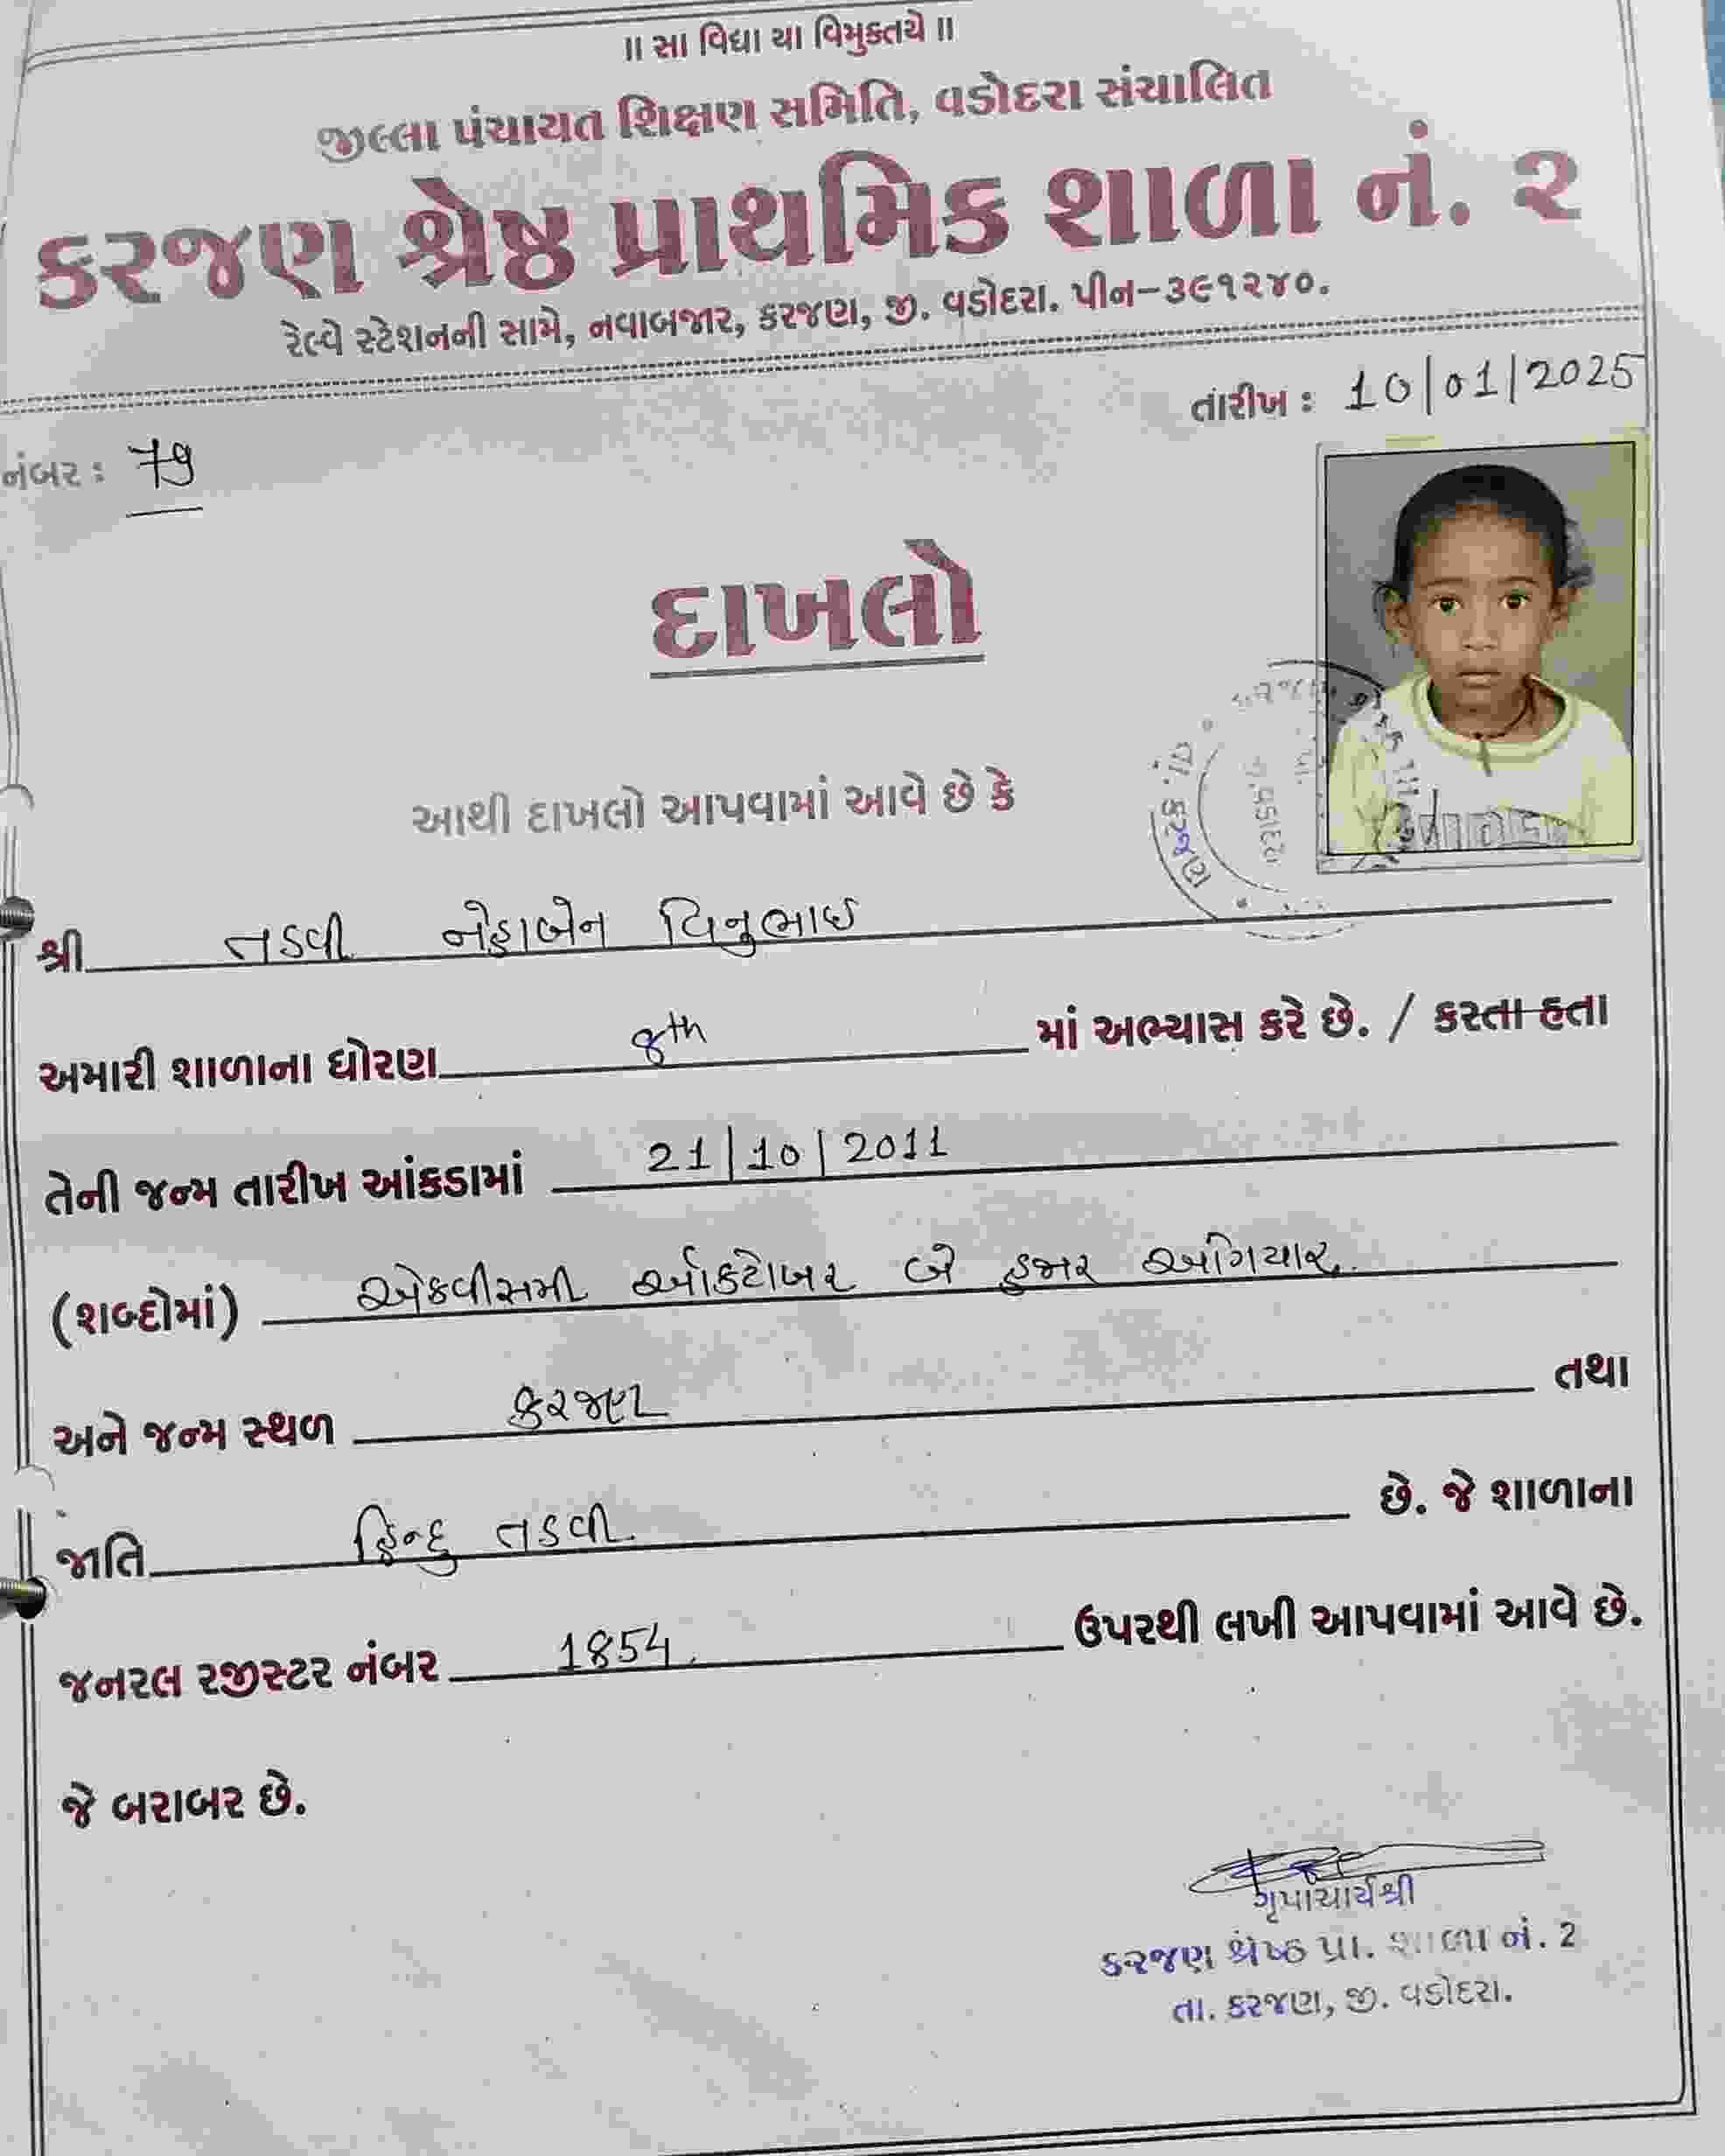 ॥ સા વિદ્યા યા વિમુક્તયે ॥
જીલ્લા પંચાયત શિક્ષણ સમિતિ, વડોદરા સંચાલિત
કરજણ શ્રેષ્ઠ પ્રાથમિક શાળા નં. ૨
રેલ્વે સ્ટેશનની સામે, નવાબજાર, કરજણ, જી. વડોદરા. પીન-૩૯૧૨૪૦.
તારીખ : 10/01/2025
નંબર : 79
દાખલો
આથી દાખલો આપવામાં આવે છે કે
શ્રી તડવી નેહાબેન વિનુભાઈ
અમારી શાળાના ધોરણ 8th માં અભ્યાસ કરે છે. / કરતા હતા
તેની જન્મ તારીખ આંકડામાં 21/10/2011
(શબ્દોમાં) એકવીસમી ઓક્ટોબર બે હજાર અગિયાર.
અને જન્મ સ્થળ કરજણ તથા
જાતિ હિન્દુ તડવી. છે. જે શાળાના
જનરલ રજીસ્ટર નંબર 1854. ઉપરથી લખી આપવામાં આવે છે.
જે બરાબર છે.
કરજણ શ્રેષ્ઠ પ્રા. શાળા નં. 2
તા. કરજણ, જી. વડોદરા.